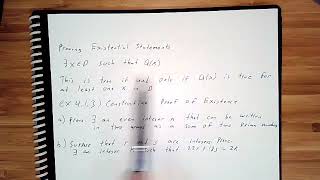 Proving Existential Statements
∃ x ∈ D such that Q(x)
This is true if and only if Q(x) is true for
at least one x in D
EX 4.1.3) Constructive Proof of Existence
a) Prove ∃ an even integer n that can be written
in two ways as a sum of two prime numbers
b) Suppose that r and s are integers. Prove
∃ an integer such that 22r + 18s = 2k